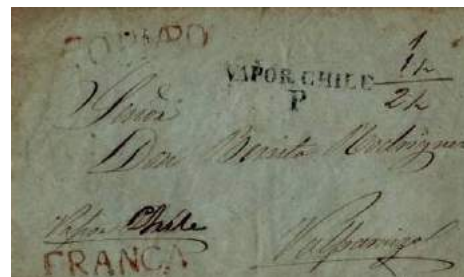 COPIAPO
1
VAPOR CHILE 1½
P 2½
Señor
Don Benito Rodriguez
Vapor Chile
FRANCA Valparaiso